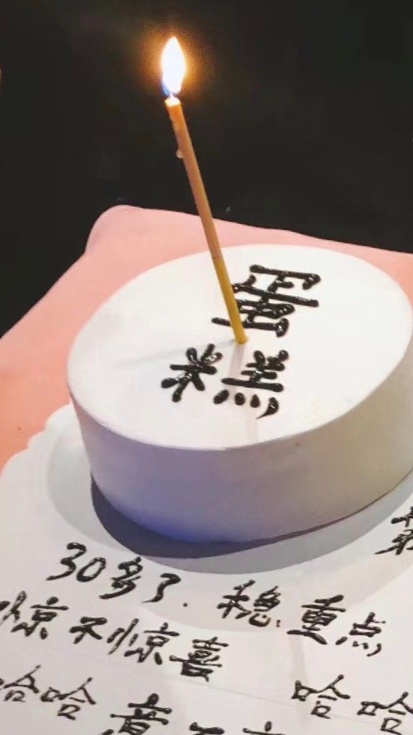 蛋
糕
30多了.稳重点
惊不惊喜
哈哈 哈哈
意